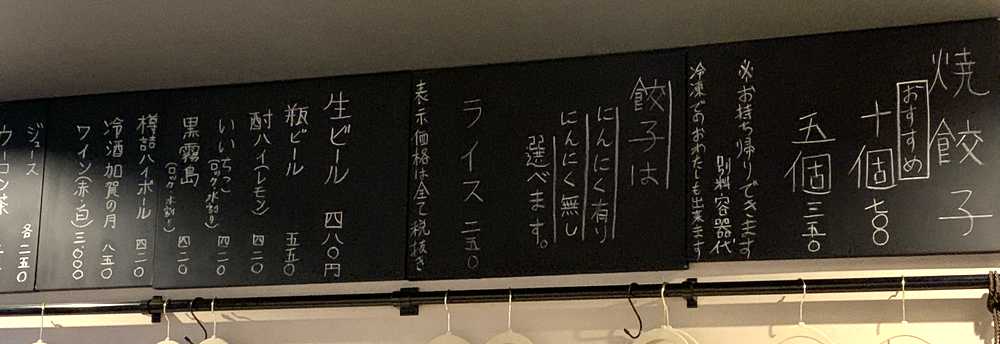 焼餃子
おすすめ
十個 七〇〇
五個 三五〇
※お持ち帰りできます
別料容器代
冷凍でおわたしも出来ます
餃子は
にんにく有り
にんにく無し
選べます。
ライス 二五〇
表示価格は全て税抜き
生ビール 四八〇円
瓶ビール 五五〇
酎ハイ(レモン) 四二〇
いいちこ(ロック、水割り) 四二〇
黒霧島(ロック、水割り) 四二〇
樽詰ハイボール 四二〇
冷酒加賀の月 八五〇
ワイン(赤・白) 三〇〇〇
ジュース 各二五〇
ウーロン茶